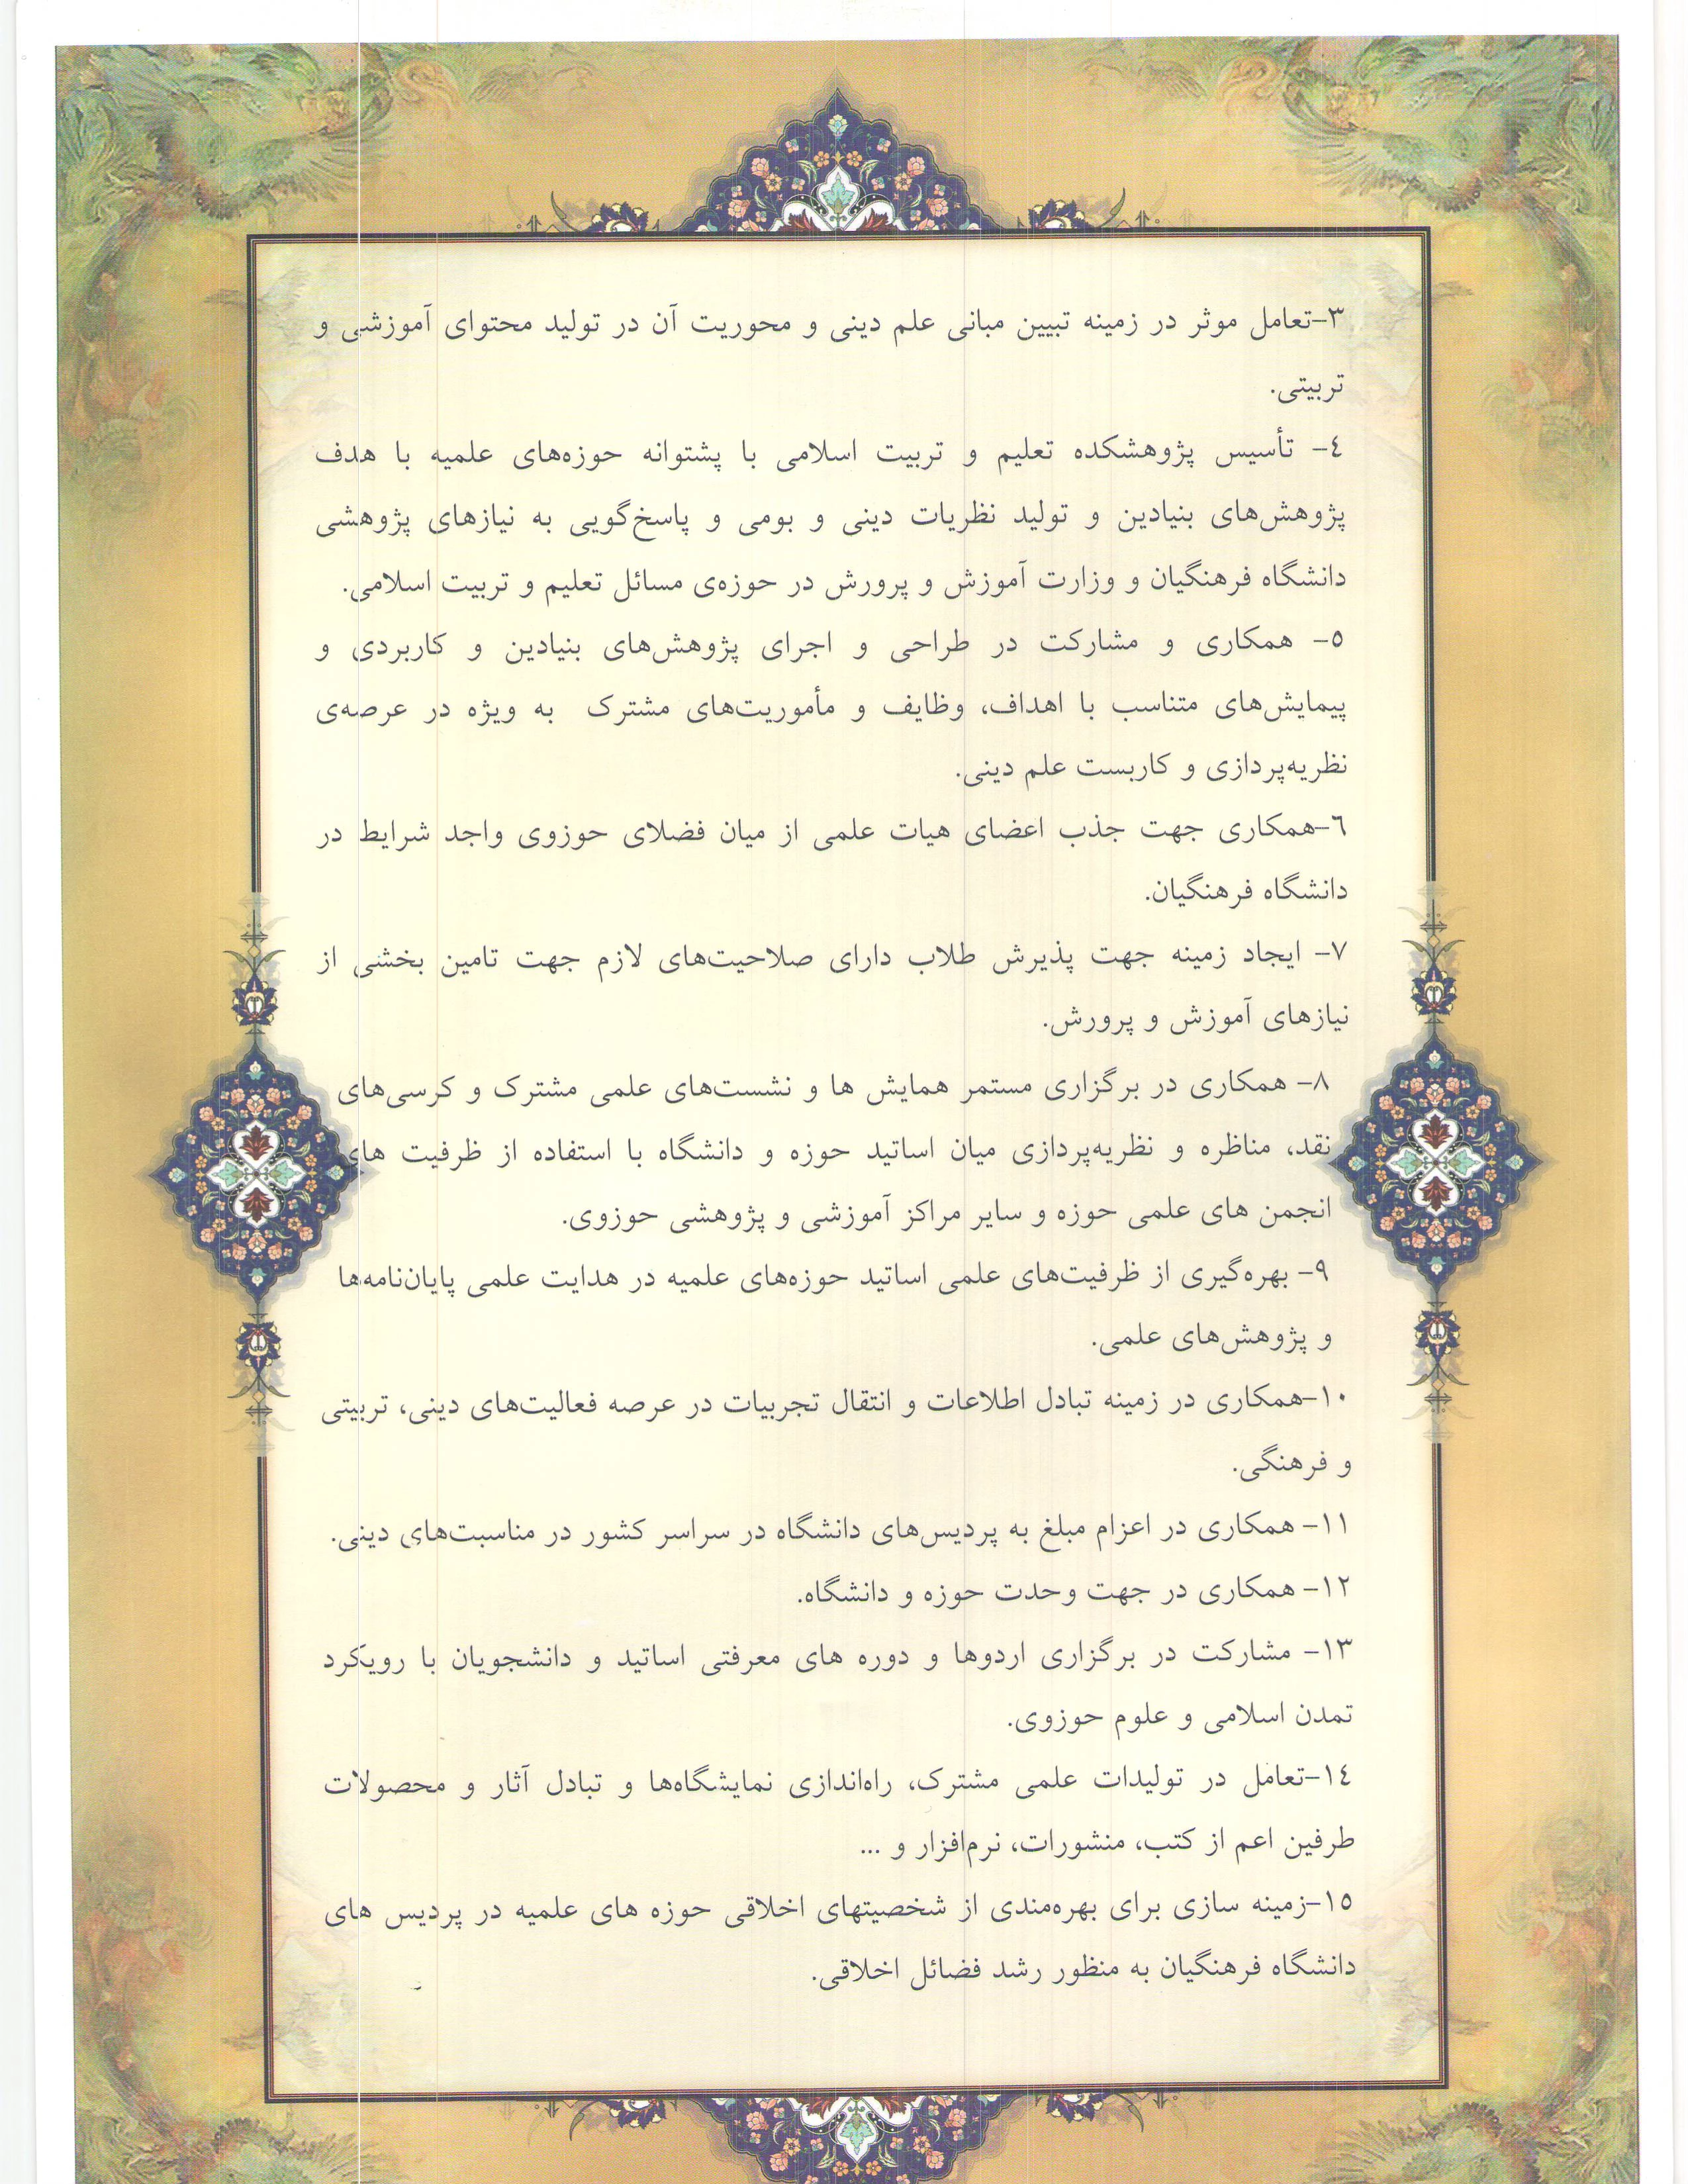 ۳-تعامل موثر در زمینه تبیین مبانی علم دینی و محوریت آن در تولید محتوای آموزشی و
تربیتی.
٤- تأسیس پژوهشکده تعلیم و تربیت اسلامی با پشتوانه حوزه‌های علمیه با هدف
پژوهش‌های بنیادین و تولید نظریات دینی و بومی و پاسخ‌گویی به نیازهای پژوهشی
دانشگاه فرهنگیان و وزارت آموزش و پرورش در حوزه‌ی مسائل تعلیم و تربیت اسلامی.
٥- همکاری و مشارکت در طراحی و اجرای پژوهش‌های بنیادین و کاربردی و
پیمایش‌های متناسب با اهداف، وظایف و مأموریت‌های مشترک به ویژه در عرصه‌ی
نظریه‌پردازی و کاربست علم دینی.
٦-همکاری جهت جذب اعضای هیات علمی از میان فضلای حوزوی واجد شرایط در
دانشگاه فرهنگیان.
۷- ایجاد زمینه جهت پذیرش طلاب دارای صلاحیت‌های لازم جهت تامین بخشی از
نیازهای آموزش و پرورش.
۸- همکاری در برگزاری مستمر همایش ها و نشست‌های علمی مشترک و کرسی‌های
نقد، مناظره و نظریه‌پردازی میان اساتید حوزه و دانشگاه با استفاده از ظرفیت های
انجمن های علمی حوزه و سایر مراکز آموزشی و پژوهشی حوزوی.
۹- بهره‌گیری از ظرفیت‌های علمی اساتید حوزه‌های علمیه در هدایت علمی پایان‌نامه‌ها
و پژوهش‌های علمی.
۱۰-همکاری در زمینه تبادل اطلاعات و انتقال تجربیات در عرصه فعالیت‌های دینی، تربیتی
و فرهنگی.
۱۱- همکاری در اعزام مبلغ به پردیس‌های دانشگاه در سراسر کشور در مناسبت‌های دینی.
۱۲- همکاری در جهت وحدت حوزه و دانشگاه.
۱۳- مشارکت در برگزاری اردوها و دوره های معرفتی اساتید و دانشجویان با رویکرد
تمدن اسلامی و علوم حوزوی.
۱٤-تعامل در تولیدات علمی مشترک، راه‌اندازی نمایشگاه‌ها و تبادل آثار و محصولات
طرفین اعم از کتب، منشورات، نرم‌افزار و ...
۱٥-زمینه سازی برای بهره‌مندی از شخصیتهای اخلاقی حوزه های علمیه در پردیس های
دانشگاه فرهنگیان به منظور رشد فضائل اخلاقی.